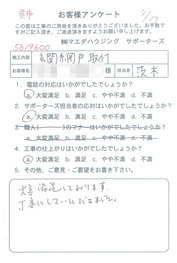 お客様アンケート
この度は工事のご用命を頂きありがとうございました。お手数で
すがご記入頂き、ご返送頂きますようお願い申し上げます。
㈱マエダハウジング サポーターズ
工事内容 玄関網戸取付
お客様名 様 担当者 茨木
1. 電話の対応はいかがでしたでしょうか?
a. 大変満足 b. 満足 c. やや不満 d. 不満
2. サポーターズ担当者の応対はいかがでしたでしょうか?
a. 大変満足 b. 満足 c. やや不満 d. 不満
3. 職人( )のマナーはいかがでしたでしょうか?
a. 大変満足 b. 満足 c. やや不満 d. 不満
4. 工事の仕上がりはいかがでしたでしょうか?
a. 大変満足 b. 満足 c. やや不満 d. 不満
5. その他、ご意見・ご要望をお書き下さい。
大変満足しております。
丁寧にしていただきました。